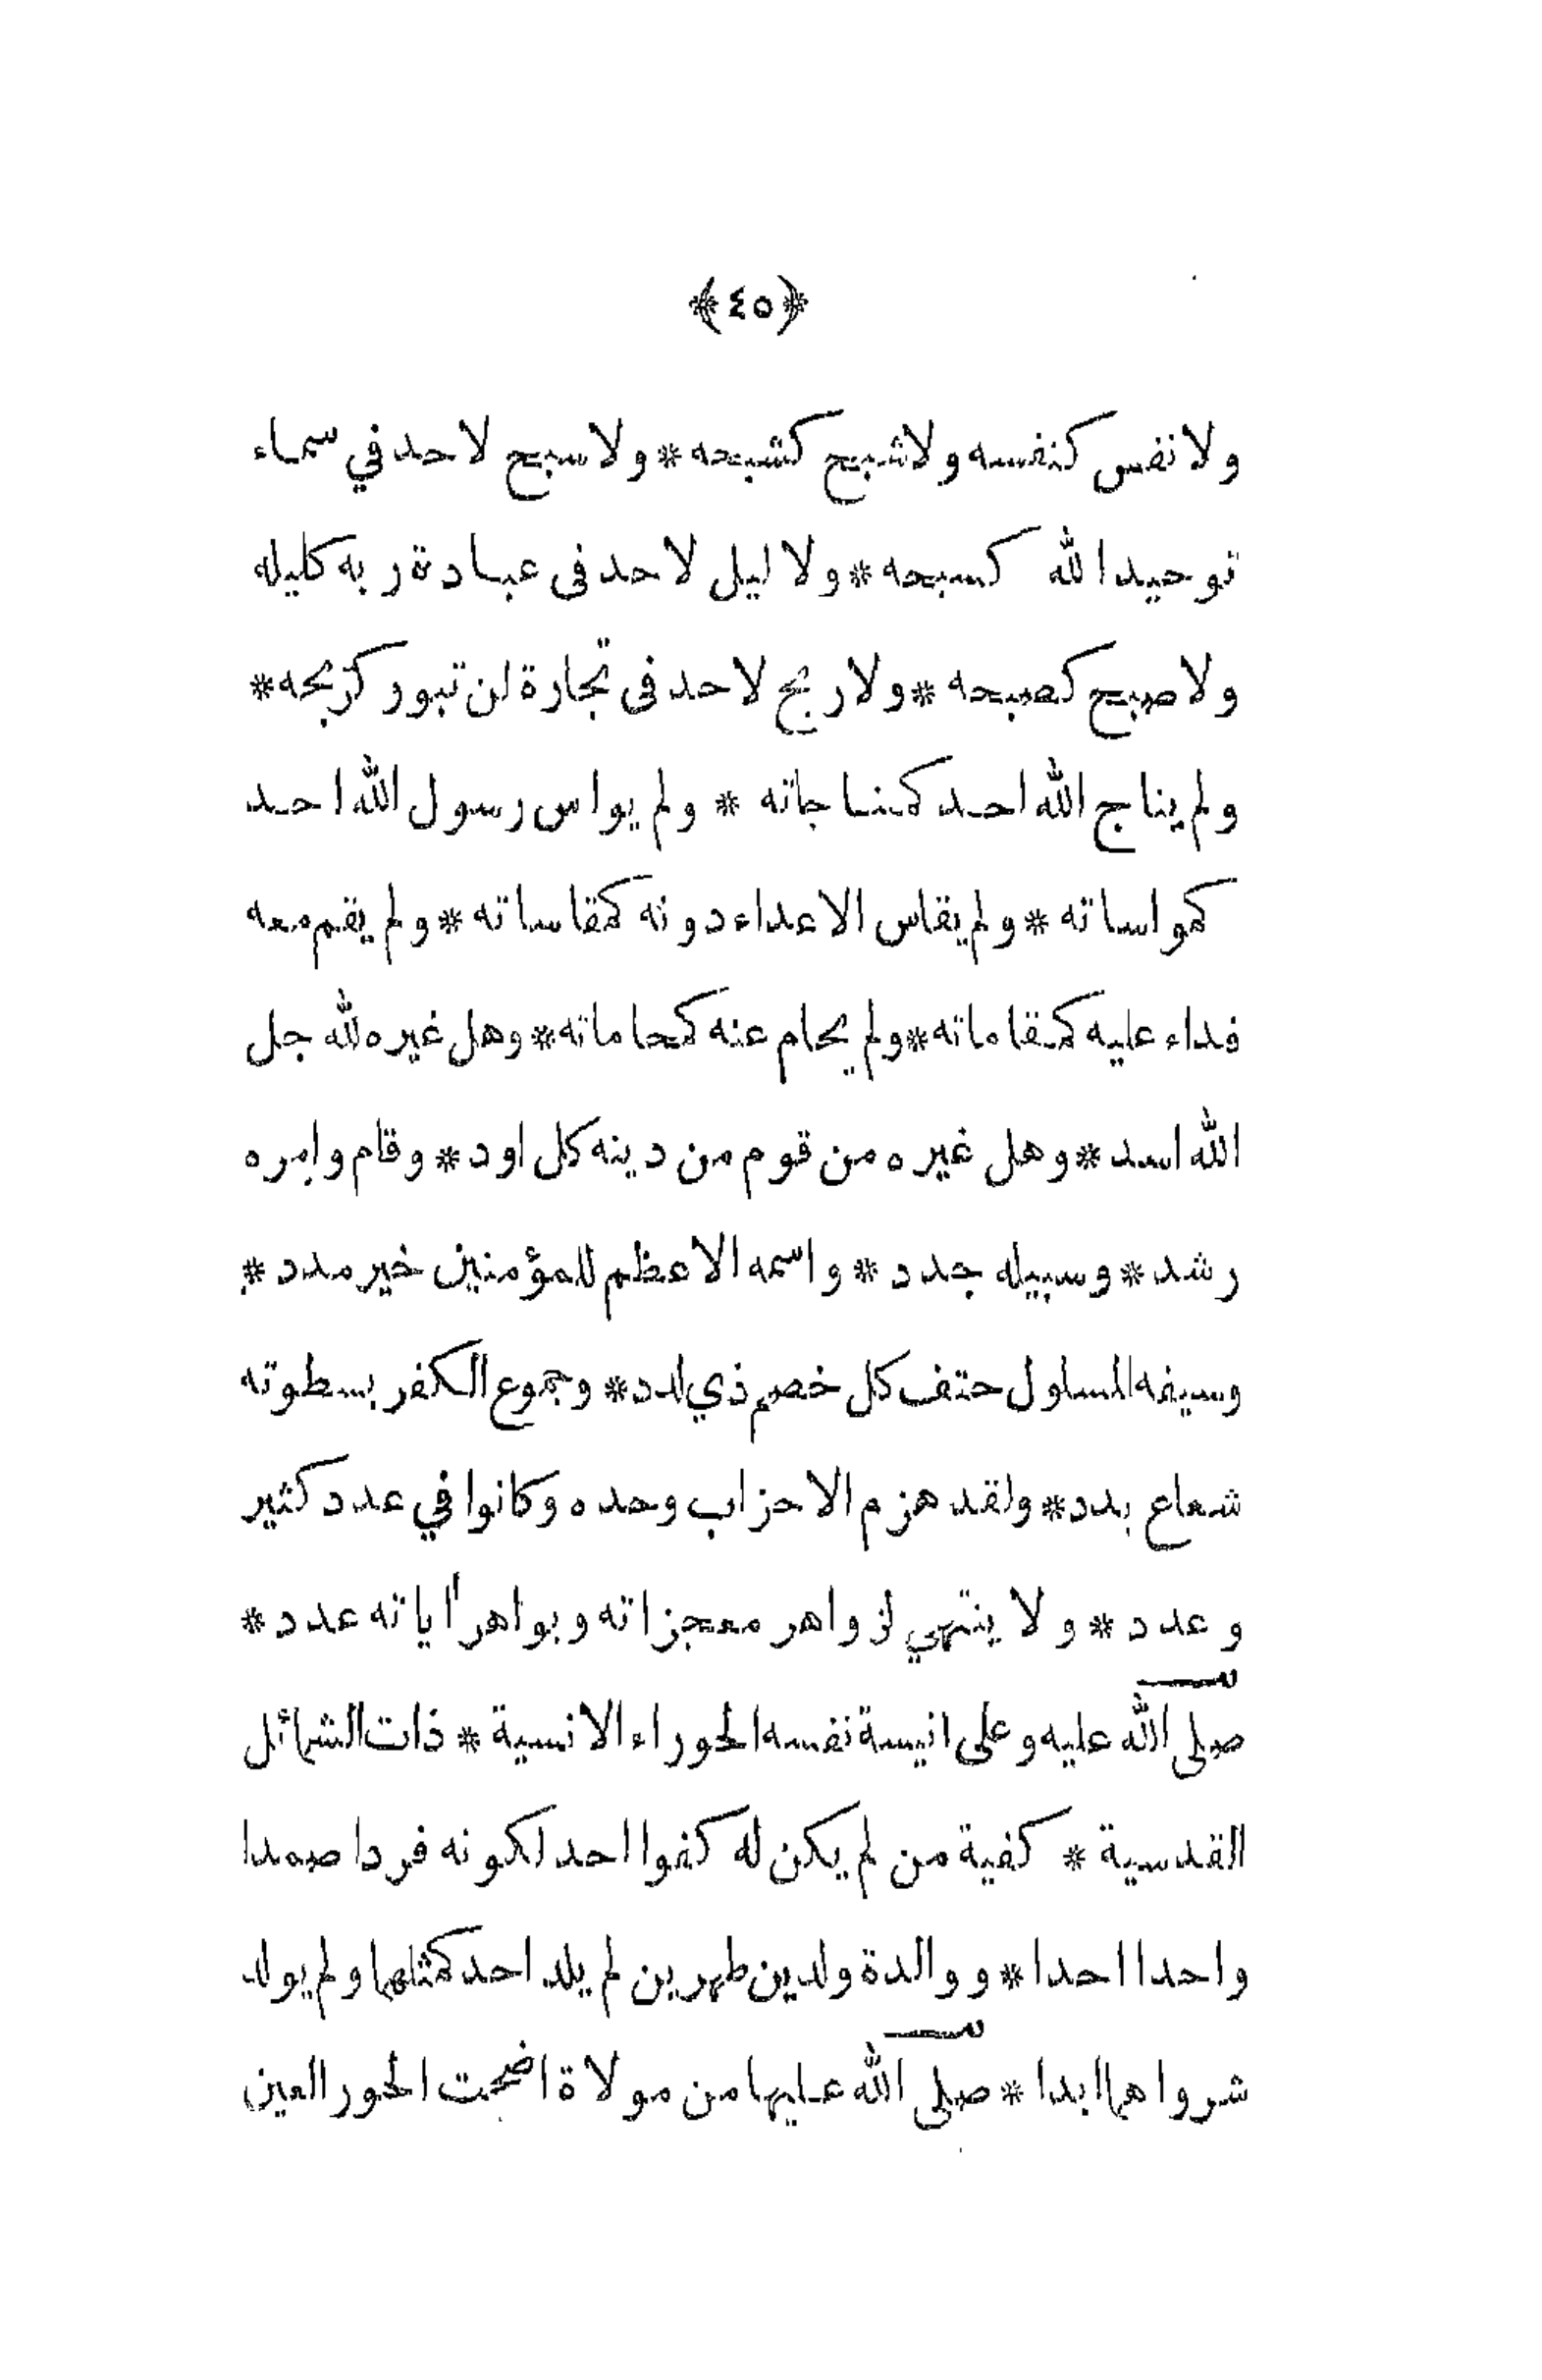 ﴿٤٥﴾
ولا نفس كنفسه ولا شبح كشبحه * ولا سبح لاحد في سماء
توحيد الله كسبحه * ولا ليل لاحد فى عبادة ربه كليله
ولا صبح كصبحه * ولا ربح لاحد فى تجارة لن تبور كربحه *
ولم يناج الله احد كمناجاته * ولم يواس رسول الله احد
كمواساته * ولم يقاس الاعداء دونه كمقاساته * ولم يقم معه
فداء عليه كمقاماته * ولم يحام عنه كمحاماته * وهل غيره لله جل
الله اسد * وهل غيره من قوم من دينه كل اود * وقام وامره
رشد * وسبيله جدد * واسمه الاعظم للمؤمنين خير مدد *
وسيفه المسلول حتف كل خصم ذي لدد * وجموع الكفر بسطوته
شعاع بدد * ولقد هزم الاحزاب وحده وكانوا في عدد كثير
وعدد * ولا ينتهي لزواهر معجزاته وبواهر أاياته عدد *
صلى الله عليه وعلى انيسة نفسه الحوراء الانسية * ذات الشمائل
القدسية * كفية من لم يكن له كفوا احد لكونه فردا صمدا
واحدا احدا * ووالدة ولدين طهرين لم يلد احد كمثلهما ولم يولد
شرواهما ابدا * صلى الله عليها من مولاة اضحت الحور العين